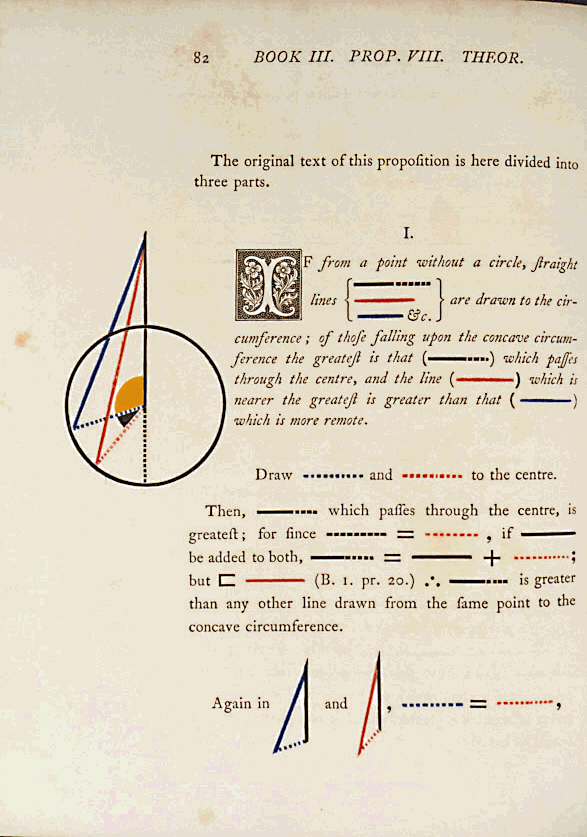 82 BOOK III. PROP. VIII. THEOR.
The original text of this propoſition is here divided into
three parts.
I.
IF from a point without a circle, ſtraight
lines { &c. } are drawn to the cir-
cumference ; of thoſe falling upon the concave circum-
ference the greateſt is that ( ) which paſſes
through the centre, and the line ( ) which is
nearer the greateſt is greater than that ( )
which is more remote.
Draw and to the centre.
Then, which paſſes through the centre, is
greateſt ; for ſince = , if
be added to both, = + ;
but ⊏ (B. 1. pr. 20.) ∴ is greater
than any other line drawn from the ſame point to the
concave circumference.
Again in and , = ,